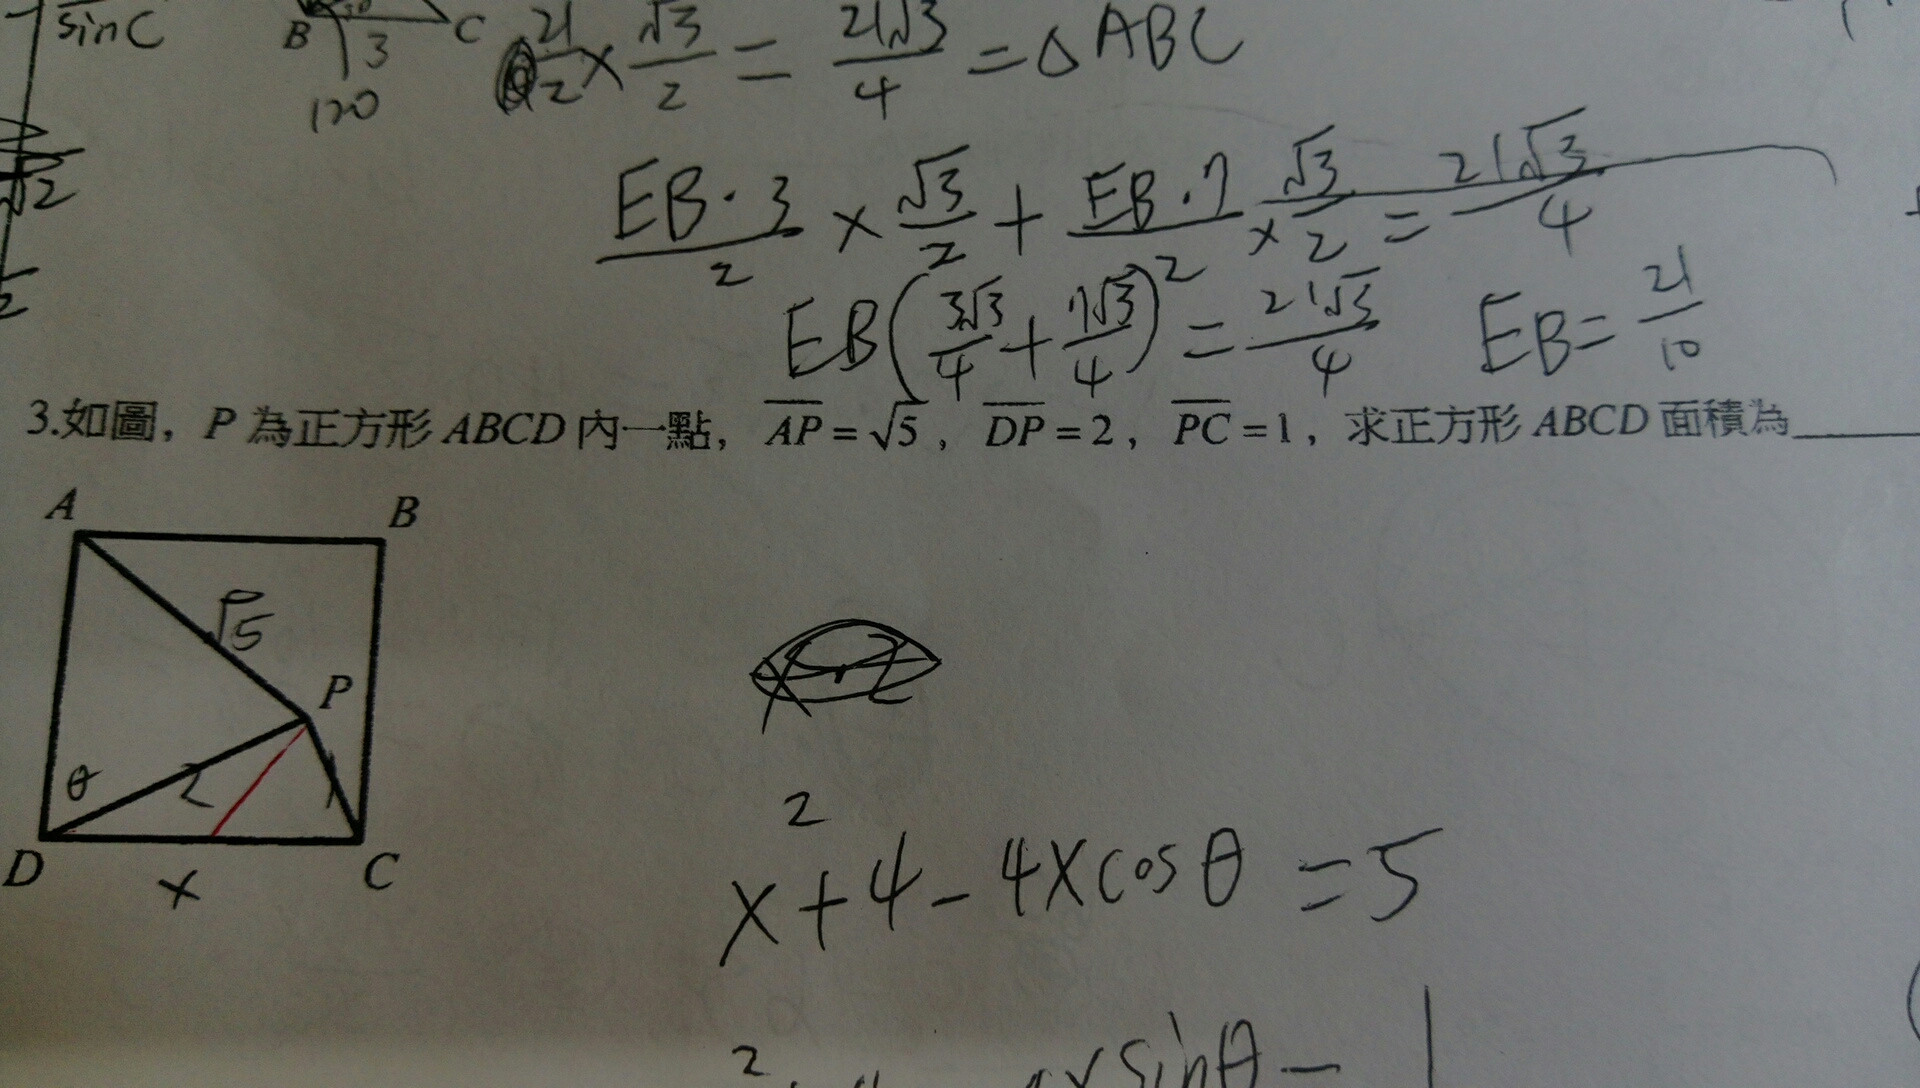 sinC
B 3 C
120
21/2 × √3/2 = 21√3/4 = △ABC
√2
EB·3/2 × √3/2 + EB·7/2 × √3/2 = 21√3/4
EB(3√3/4 + 7√3/4) = 21√3/4 EB = 21/10
3.如圖，P 為正方形 ABCD 內一點，AP = √5，DP = 2，PC = 1，求正方形 ABCD 面積為
A B
√5
P
θ 2 1
D x C
x² + 4 - 4x cosθ = 5
2 x sinθ = 1